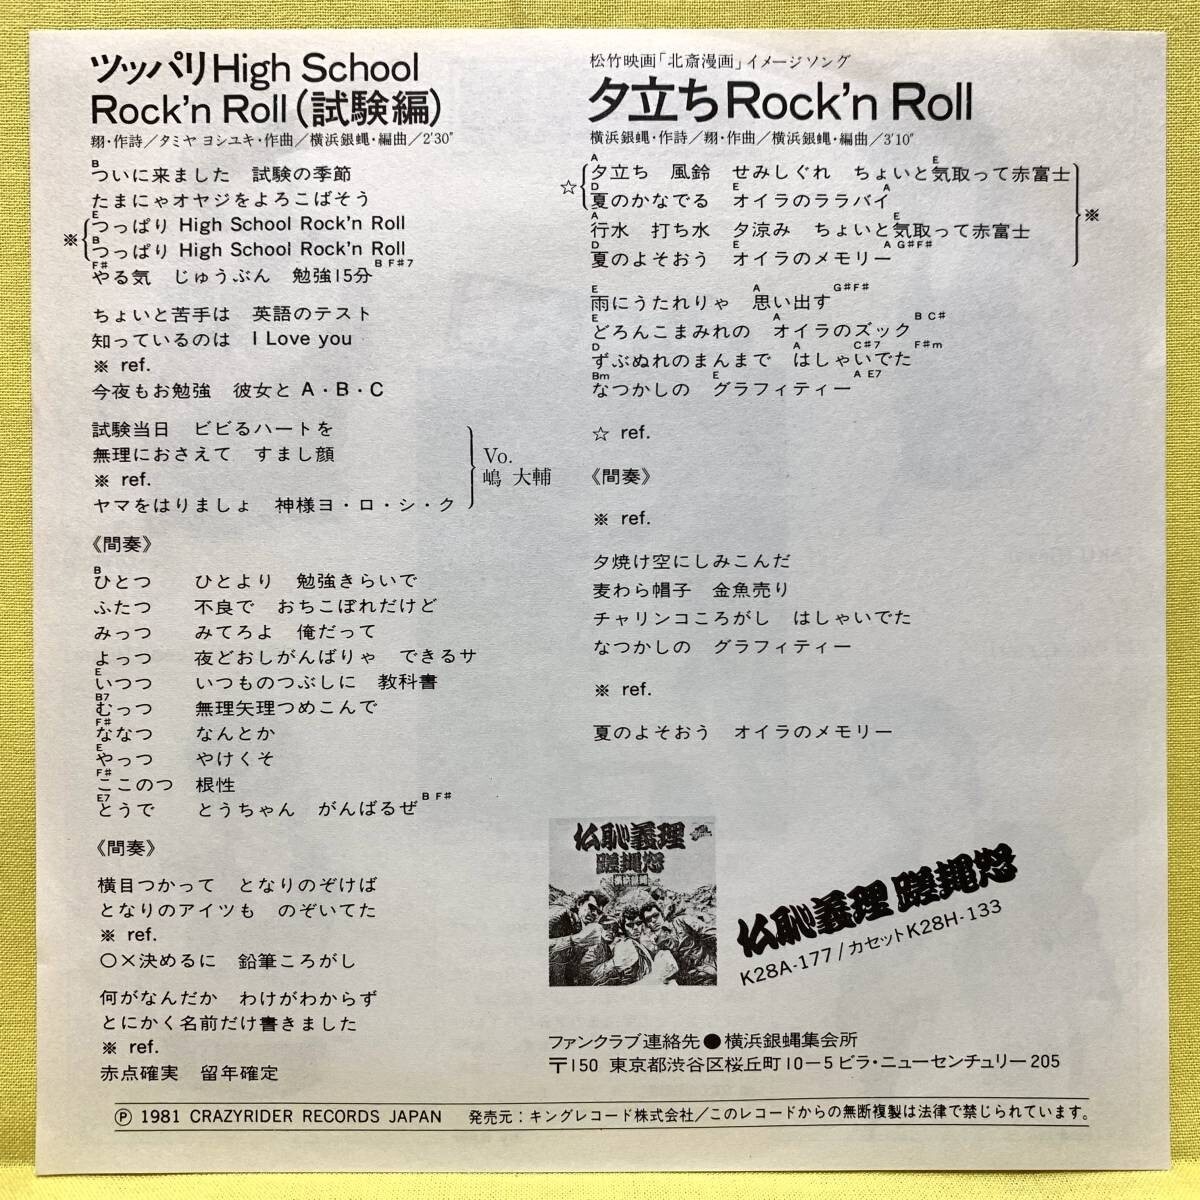 ツッパリHigh School
Rock'n Roll(試験編)
翔・作詩/タミヤ ヨシユキ・作曲/横浜銀蝿・編曲/2'30"
B
ついに来ました 試験の季節
たまにゃオヤジをよろこばそう
E
※ つっぱり High School Rock'n Roll
B
つっぱり High School Rock'n Roll
F# B F#7
やる気 じゅうぶん 勉強15分
ちょいと苦手は 英語のテスト
知っているのは I Love you
※ ref.
今夜もお勉強 彼女と A・B・C
試験当日 ビビるハートを
無理におさえて すまし顔
※ ref.
ヤマをはりましょ 神様ヨ・ロ・シ・ク
Vo.
嶋 大輔
《間奏》
B
ひとつ ひとより 勉強きらいで
ふたつ 不良で おちこぼれだけど
みっつ みてろよ 俺だって
よっつ 夜どおしがんばりゃ できるサ
E
いつつ いつものつぶしに 教科書
B7
むっつ 無理矢理つめこんで
F#
ななつ なんとか
E
やっつ やけくそ
F#
ここのつ 根性
E7 B F#
とうで とうちゃん がんばるぜ
《間奏》
横目つかって となりのぞけば
となりのアイツも のぞいてた
※ ref.
○×決めるに 鉛筆ころがし
何がなんだか わけがわからず
とにかく名前だけ書きました
※ ref.
赤点確実 留年確定
松竹映画「北斎漫画」イメージソング
夕立ちRock'n Roll
横浜銀蝿・作詩/翔・作曲/横浜銀蝿・編曲/3'10"
A E
☆ 夕立ち 風鈴 せみしぐれ ちょいと気取って赤富士
D E A
夏のかなでる オイラのララバイ
※
A E
行水 打ち水 夕涼み ちょいと気取って赤富士
D E A G#F#
夏のよそおう オイラのメモリー
E A G#F#
雨にうたれりゃ 思い出す
E A B C#
どろんこまみれの オイラのズック
D A C#7 F#m
ずぶぬれのまんまで はしゃいでた
Bm E A E7
なつかしの グラフィティー
☆ ref.
《間奏》
※ ref.
夕焼け空にしみこんだ
麦わら帽子 金魚売り
チャリンコころがし はしゃいでた
なつかしの グラフィティー
※ ref.
夏のよそおう オイラのメモリー
仏恥義理
蹉蝿怒
仏恥義理 蹉蝿怒
K28A-177/カセットK28H-133
ファンクラブ連絡先●横浜銀蝿集会所
〒150 東京都渋谷区桜丘町10-5ビラ・ニューセンチュリー205
Ⓟ 1981 CRAZYRIDER RECORDS JAPAN 発売元:キングレコード株式会社/このレコードからの無断複製は法律で禁じられています。